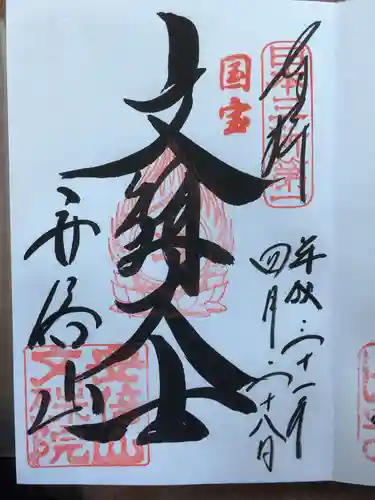 奉拝
日本三文殊第一
平成三十一年
四月二十八日
国宝
文殊大士
安倍山
安倍山
文殊院